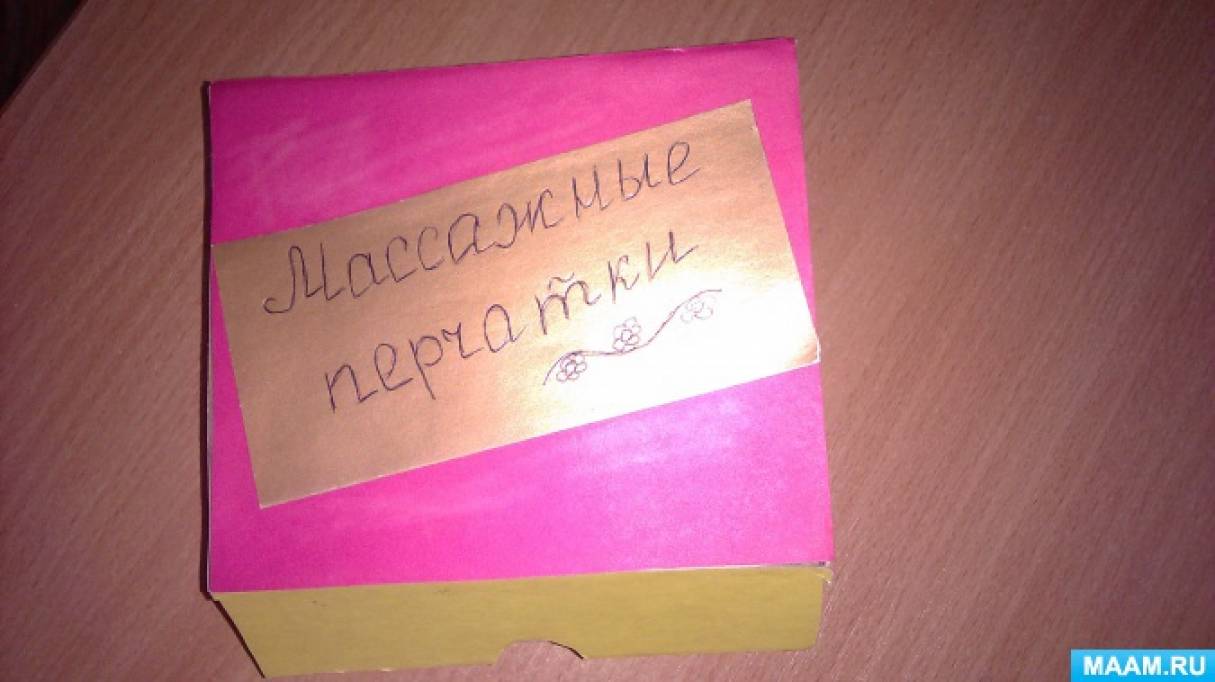 Массажные
перчатки
MAAM.RU